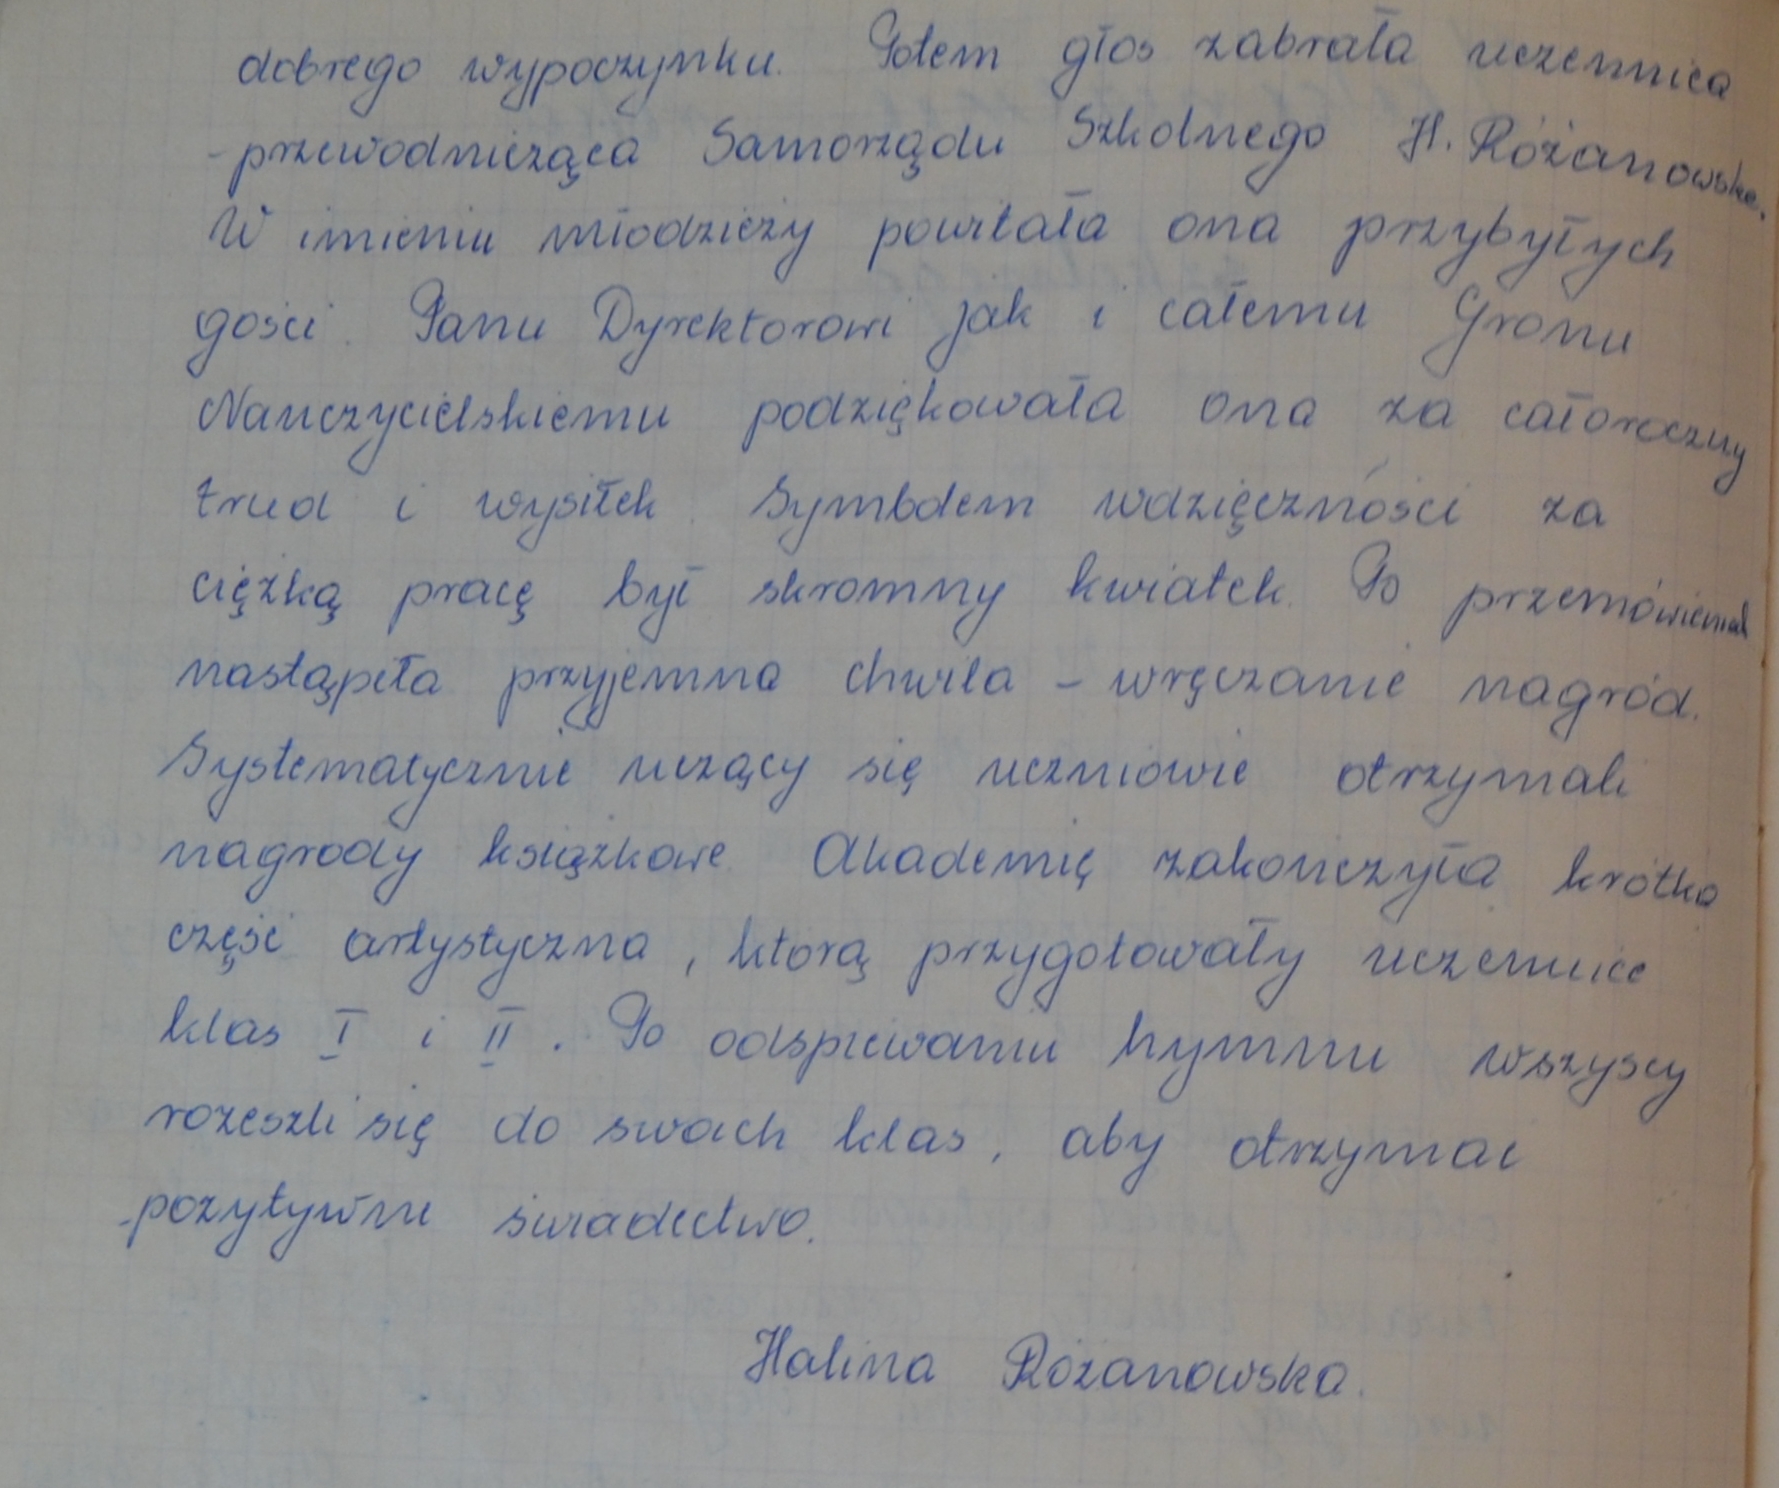 dobrego wypoczynku. Potem głos zabrała uczennica
-przewodnicząca Samorządu Szkolnego H. Różanowska.
W imieniu młodzieży powitała ona przybyłych
gości. Panu Dyrektorowi jak i całemu Gronu
Nauczycielskiemu podziękowała ona za całoroczny
trud i wysiłek. Symbolem wdzięczności za
ciężką pracę był skromny kwiatek. Po przemówieniach
nastąpiła przyjemna chwila - wręczanie nagród.
Systematycznie uczący się uczniowie otrzymali
nagrody książkowe. Akademię zakończyła krótka
część artystyczna, którą przygotowały uczennice
klas I i II. Po odśpiewaniu hymnu wszyscy
rozeszli się do swoich klas, aby otrzymać
pozytywne świadectwo.
Halina Różanowska.